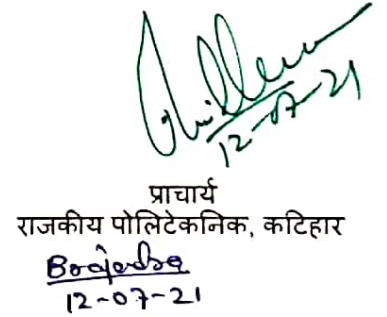 12-07-21
प्राचार्य
राजकीय पोलिटेकनिक, कटिहार
12-07-21